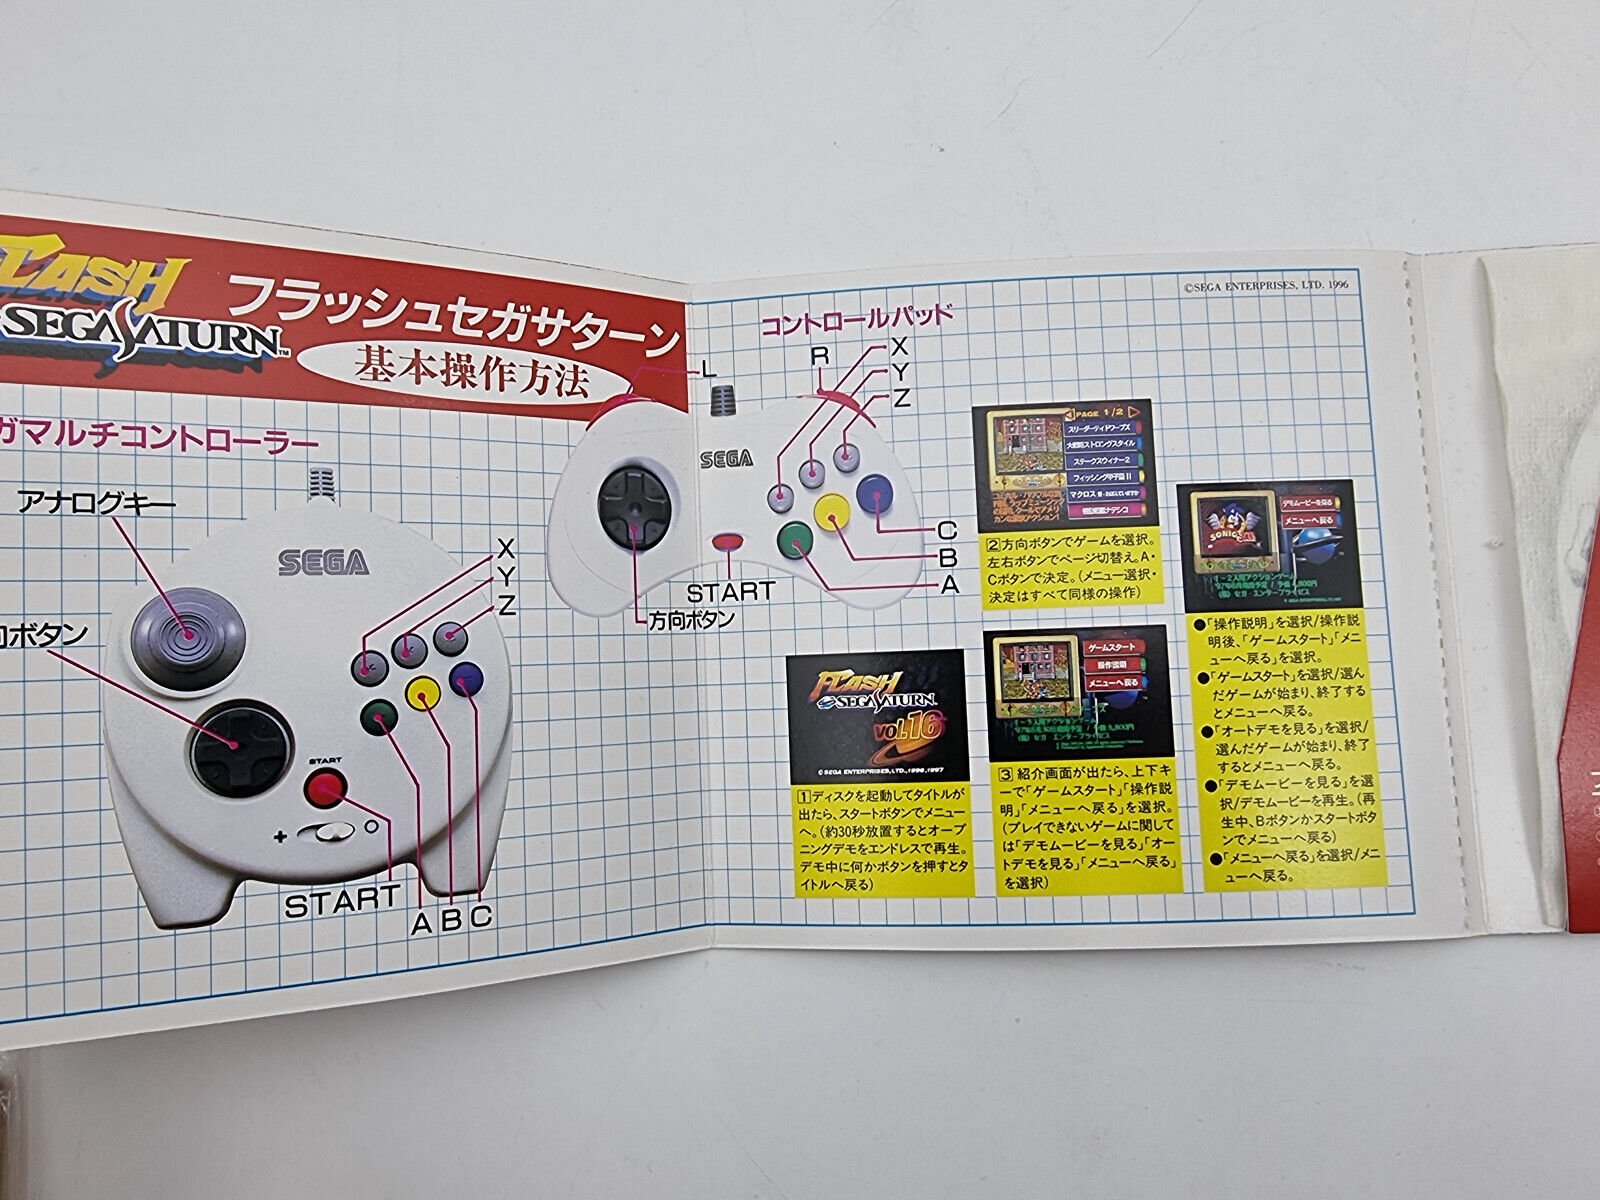 FLASH
SEGA SATURN™
フラッシュセガサターン
基本操作方法
ガマルチコントローラー
アナログキー
向ボタン
SEGA
X
Y
Z
START
START
A B C
コントロールパッド
L
R
X
Y
Z
SEGA
C
B
A
START
方向ボタン
©SEGA ENTERPRISES, LTD. 1996
FLASH
SEGA SATURN
vol.16
©SEGA ENTERPRISES,LTD.,1996,1997
1 ディスクを起動してタイトルが
出たら、スタートボタンでメニュー
へ。(約30秒放置するとオープ
ニングデモをエンドレスで再生。
デモ中に何かボタンを押すとタ
イトルへ戻る)
PAGE 1/2
大戦略ストロングスタイル
ステークスウィナー2
フィッシング甲子園II
マクロス
2 方向ボタンでゲームを選択。
左右ボタンでページ切替え。A・
Cボタンで決定。(メニュー選択・
決定はすべて同様の操作)
ゲームスタート
操作説明
メニューへ戻る
3 紹介画面が出たら、上下キ
ーで「ゲームスタート」「操作説
明」「メニューへ戻る」を選択。
(プレイできないゲームに関して
は「デモムービーを見る」「オー
トデモを見る」「メニューへ戻る」
を選択)
デモムービーを見る
メニューへ戻る
SONIC
●「操作説明」を選択/操作説
明後、「ゲームスタート」「メニ
ューへ戻る」を選択。
●「ゲームスタート」を選択/選ん
だゲームが始まり、終了する
とメニューへ戻る。
●「オートデモを見る」を選択/
選んだゲームが始まり、終了
するとメニューへ戻る。
●「デモムービーを見る」を選
択/デモムービーを再生。(再
生中、Bボタンかスタートボタ
ンでメニューへ戻る)
●「メニューへ戻る」を選択/メニ
ューへ戻る。